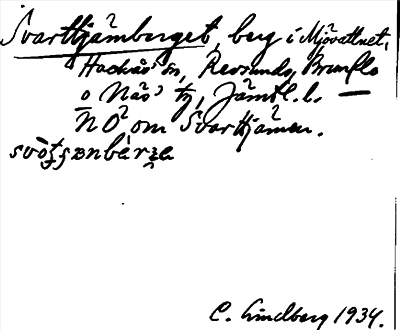 Svarttjämberget, berg i Mjövattnet,
Hackås sn, Revsunds, Brunflo
o Näs' tg, Jämtl. l. —
NO om Svarttjämen.
C. Lindberg 1934.